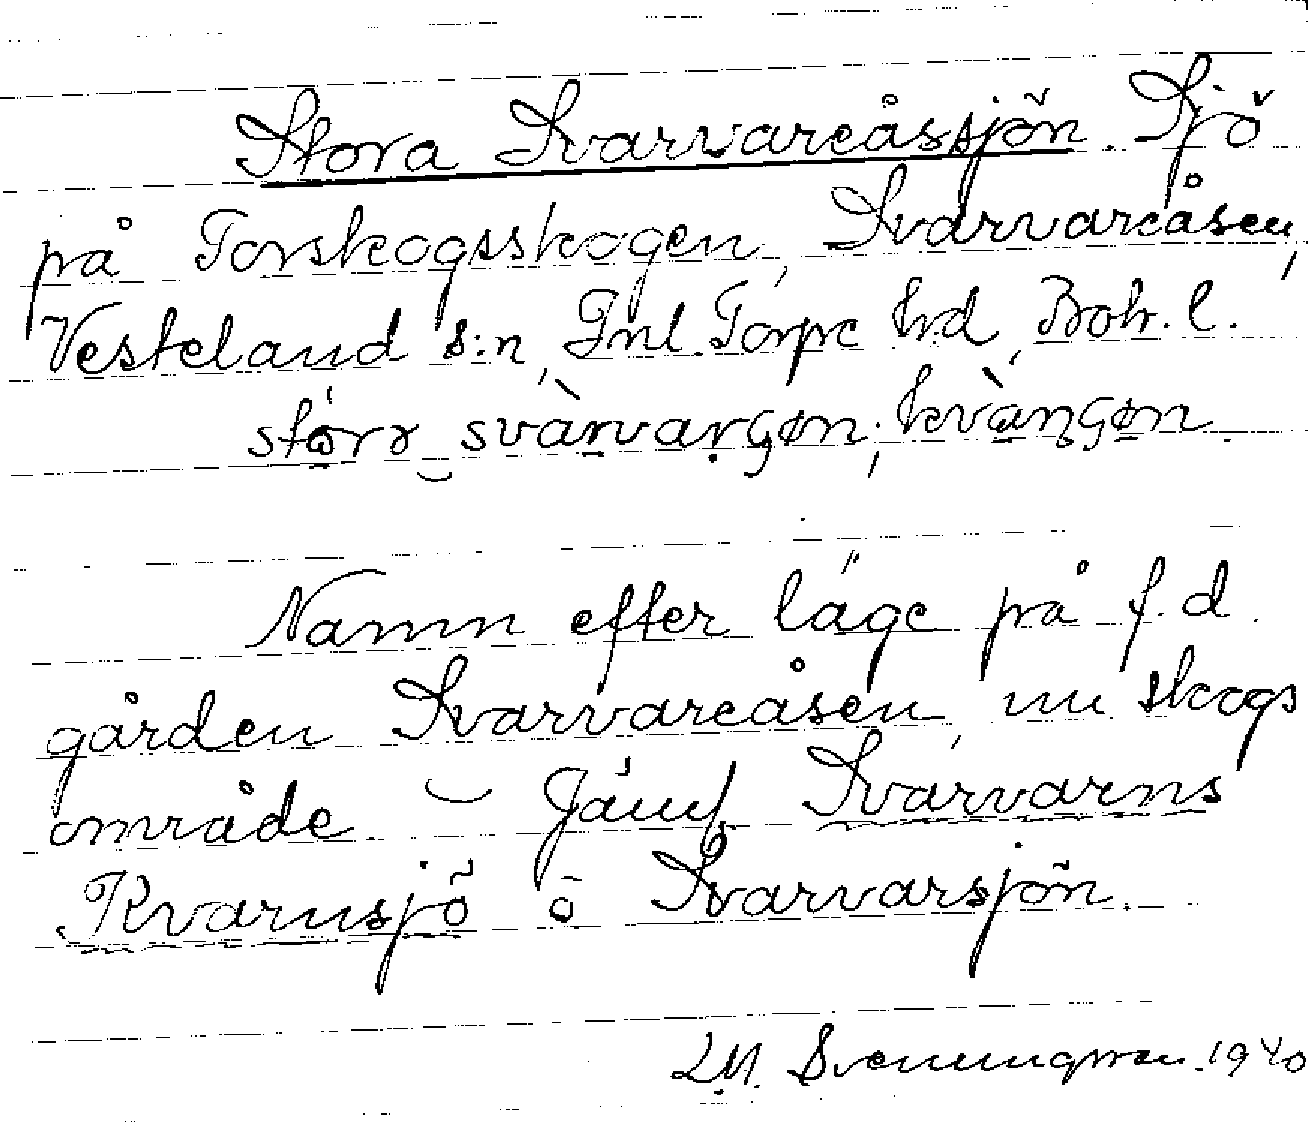 Stora Svarvareåssjön. Sjö
på Torskogsskogen, Svarvareåsen,
Vesteland s:n, Inl. Torpe hd, Boh. l.
Namn efter läge på f. d.
gården Svarvareåsen, nu skogs
område – Jämf Svarvarns
Kvarnsjö o Svarvarsjön.
L.M. Svenungsson 1940